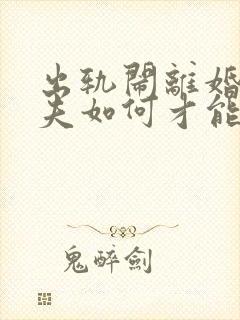 出轨鬧離婚
夫如何才能
鬼醉劍